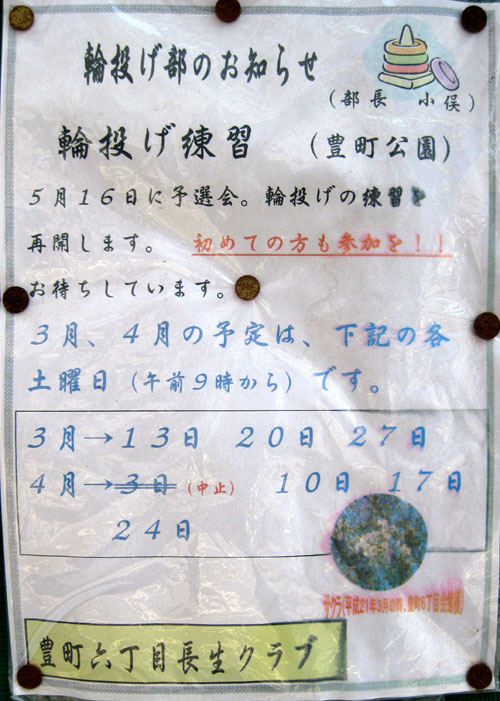 輪投げ部のお知らせ
(部長 小俣)
輪投げ練習 (豊町公園)
5月16日に予選会。輪投げの練習を
再開します。 初めての方も参加を!!
お待ちしています。
3月、4月の予定は、下記の各
土曜日(午前9時から)です。
3月→13日 20日 27日
4月→3日(中止) 10日 17日
24日
サクラ(平成21年3月 豊町6丁目
豊町六丁目長生クラブ